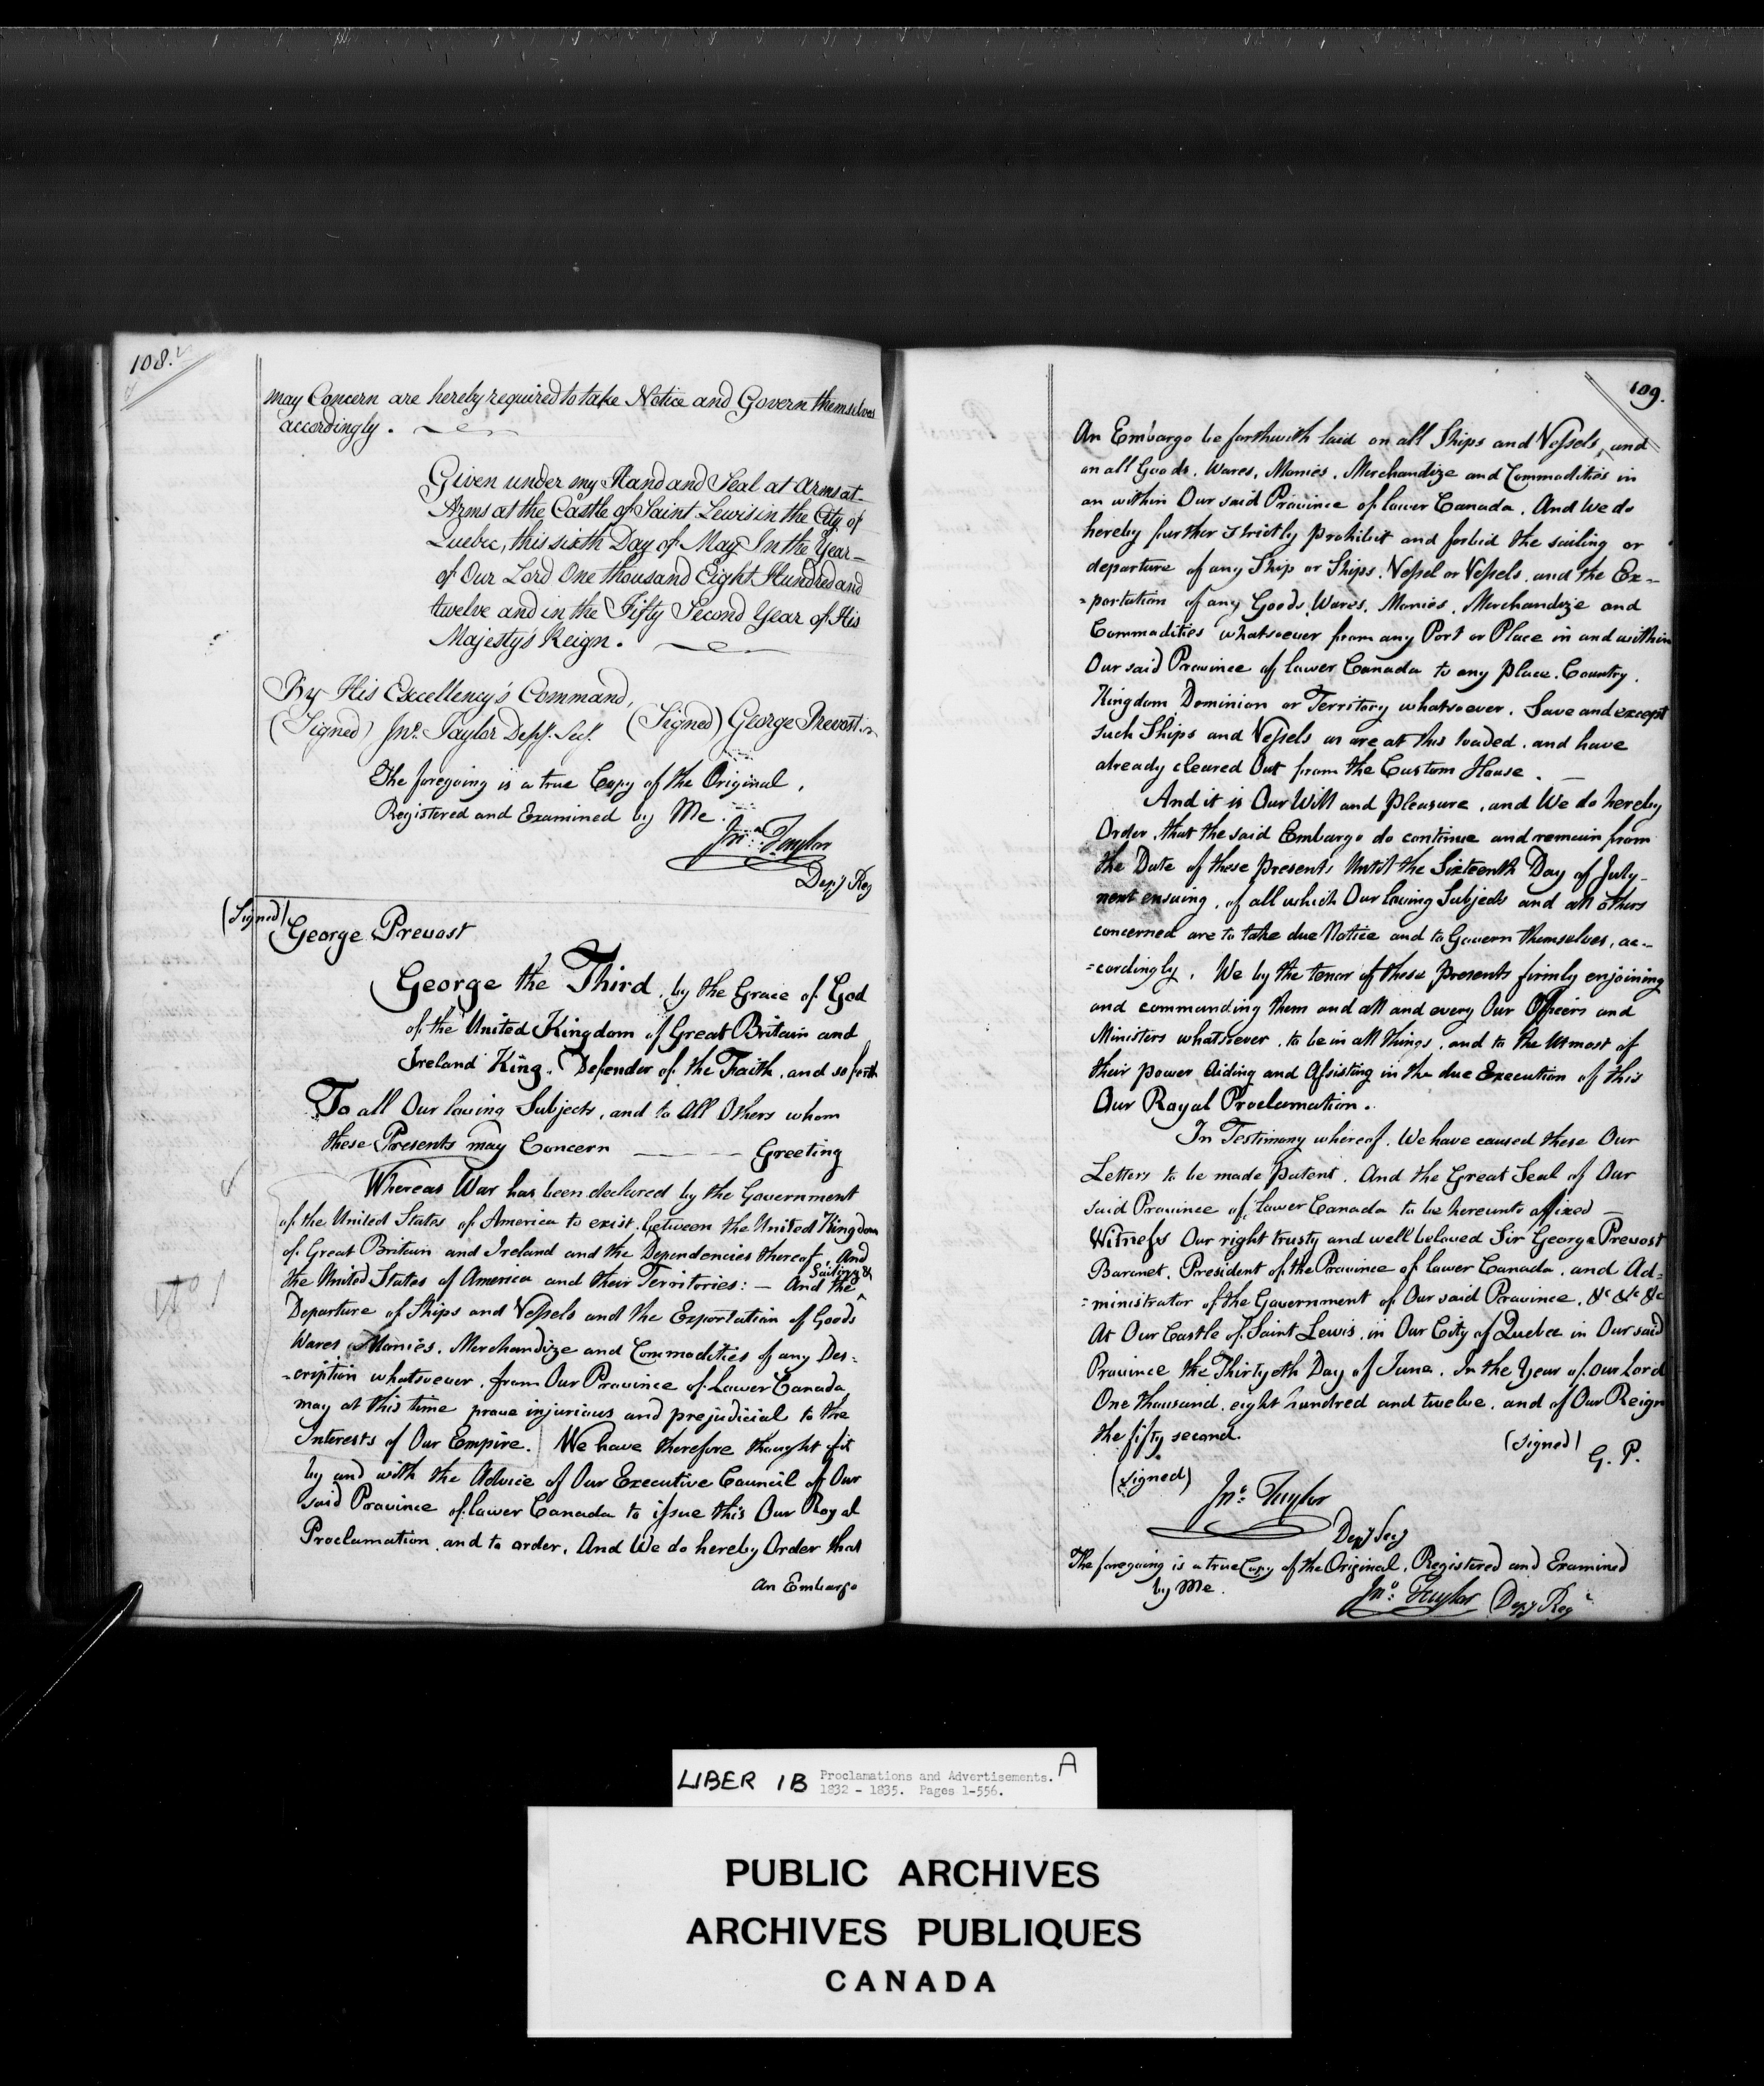 108.
may Concern are hereby required to take Notice and Govern themselves
accordingly.
Given under my Hand and Seal at Arms at
Arms at the Castle of Saint Lewis in the City of
Quebec, this sixth Day of May In the Year
of Our Lord One thousand Eight Hundred and
twelve and in the Fifty Second Year of His
Majesty's Reign.
By His Excellency's Command,
(Signed) Jno. Taylor Depy. Secy. (Signed) George Prevost
The foregoing is a true Copy of the Original,
Registered and Examined by Me.
Jno. Taylor
Depy Reg
(Signed)
George Prevost
George the Third, by the Grace of God
of the United Kingdom of Great Britain and
Ireland King. Defender of the Faith, and so forth
To all Our loving Subjects, and to All Others whom
these Presents may Concern — Greeting
Whereas War has been declared by the Government
of the United States of America to exist, between the United Kingdom
of Great Britain and Ireland and the Dependencies thereof, And
the United States of America and their Territories: — And the ^ Sailing &
Departure of Ships and Vessels and the Exportation of Goods
Wares, Monies, Merchandize and Commodities of any Des=
=cription whatsoever, from Our Province of Lower Canada
may at this time prove injurious and prejudicial to the
Interests of Our Empire. We have therefore thought fit
by and with the Advice of Our Executive Council of Our
said Province of Lower Canada to issue this Our Royal
Proclamation, and to order, And We do hereby Order that
an Embargo
109.
An Embargo be forthwith laid on all Ships and Vessels, and
on all Goods, Wares, Monies, Merchandize and Commodities in
an within Our said Province of lower Canada, And We do
hereby further strictly prohibit and forbid the sailing or
departure of any Ship or Ships, Vessel or Vessels, and the Ex=
=portation of any Goods, Wares, Monies, Merchandize and
Commodities whatsoever from any Port or Place in and within
Our said Province of lower Canada to any Place, Country,
Kingdom Dominion or Territory whatsoever, Save and except
such Ships and Vessels as are at this loaded, and have
already cleared Out from the Custom House. —
And it is Our Will and Pleasure, and We do hereby
Order, that the said Embargo do continue and remain from
the Date of these presents Until the Sixteenth Day of July
next ensuing, of all which Our loving Subjects and all others
concerned are to take due Notice and to Govern themselves, ac=
=cordingly. We by the tenor of these presents firmly enjoining
and commanding them and all and every Our Officers and
Ministers whatsoever, to be in all things, and to the Utmost of
their power Aiding and Assisting in the due Execution of this
Our Royal Proclamation.
In Testimony whereof, We have caused these Our
Letters to be made Patent, And the Great Seal of Our
said Province of Lower Canada to be hereunto affixed —
Witness Our right trusty and well beloved Sir George Prevost
Baronet, President of the Province of lower Canada, and Ad=
=ministrator of the Government of Our said Province, &c &c &c
At Our Castle of Saint Lewis, in Our City of Quebec in Our said
Province the Thirtyeth Day of June, In the Year of our Lord
One thousand, eight hundred and twelve, and of Our Reign
the fifty second.
(signed) G. P.
(signed)
Jno: Taylor
Depy Secy
The foregoing is a true Copy of the Original, Registered and Examined
by Me.
Jno: Taylor Depy Regr
LIBER 1B Proclamations and Advertisements. A
1832 - 1835. Pages 1-556.
PUBLIC ARCHIVES
ARCHIVES PUBLIQUES
CANADA